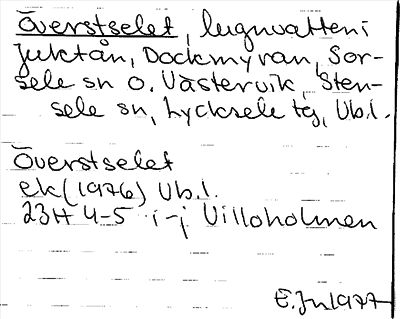 Överstselet, lugnvatten i
Juktån, Dockmyran, Sor-
sele sn o. Västervik, Sten-
sele sn, Lycksele tg, Vb.l.
Överstselet
ek (1976) Vb.l.
23H 4-5 i-j Villoholmen
E. Jn 1977